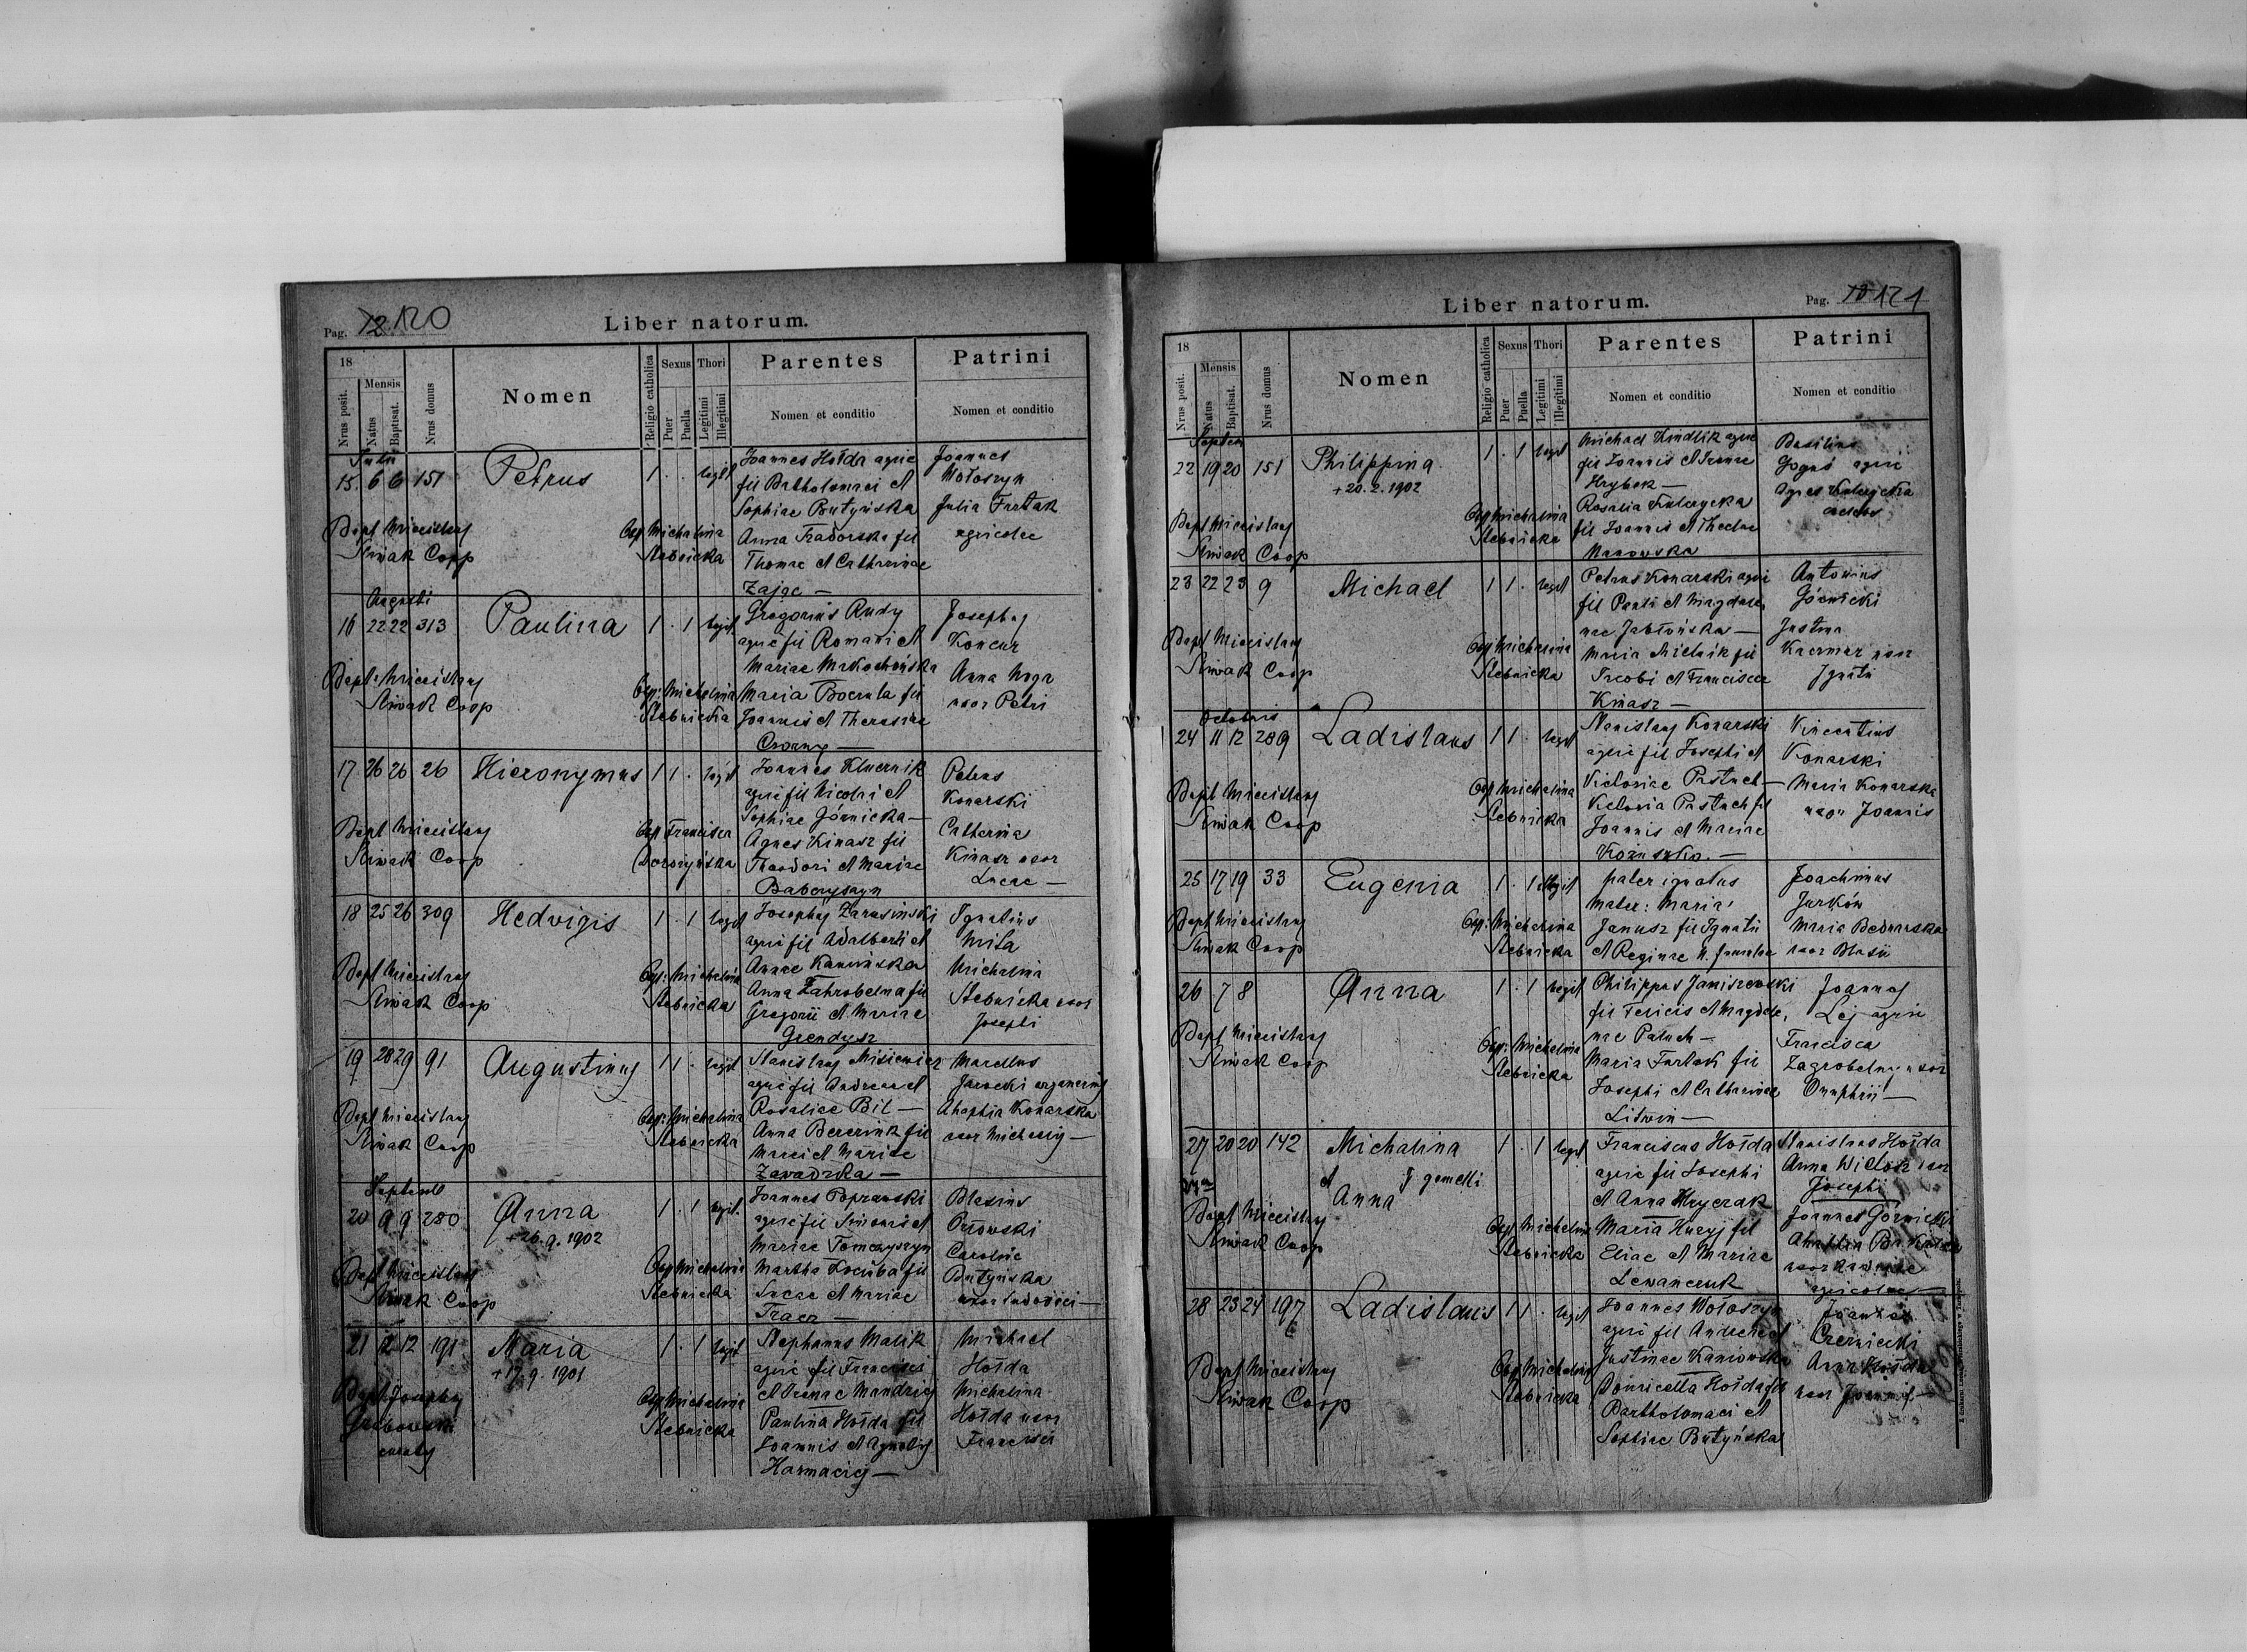 Pag. 72 120
Liber natorum.
18
Nrus posit.
Mensis
Natus
Baptisat.
Nrus domus
Nomen
Religio catholica
Sexus
Puer
Puella
Thori
Legitimi
Illegitimi
Parentes
Nomen et conditio
Patrini
Nomen et conditio
Julii
15. 6 6 151 Petrus 1 . . legit
Joannes Hołda agric
fil Bartholomaei et
Sophiae Butyńska
Anna
Thomae et Catharinae
Zając —
Joannes
Wołoszyn
Julia Furtak
agricolae
Bapt Miecislaus
Siwak Coop
Obst Michalina
Stebnicka
Augusti
16 22 22 313 Paulina 1 . 1 legit
Gregorius Rudy
agric fil Romani et
Mariae
Maria Boczula fil
Joannis et Theresiae
Josephus
Koncur
Anna Noga
uxor Petri
Bapt: Miecislaus
Siwak Coop
Obst: Michalina
Stebnicka
17 26 26 26 Hieronymus 1 1 . legit
Joannes Klucznik
agric fil Nicolai et
Sophiae Górnicka —
Agnes Kinasz fil
Theodori et Mariae
Baboryszyn
Petrus
Konarski
Catherina
Kinasz uxor
Lucae —
Bapt Miecislaus
Siwak Coop
Obst Francisca
18 25 26 309 Hedvigis 1 . 1 legit
Josephus Zarusinski
agric fil Adalberti et
Annae Kamińska
Anna Zahrobelna fil
Gregorii et Mariae
Grendysz
Ignatius
Miła
Michalina
Stebnicka uxor
Josephi
Bapt Miecislaus
Siwak Coop
Obst: Michalina
Stebnicka
19 28 29 91 Augustinus 1 1 . legit
Stanislaus Misiewicz
agric fil Andreae et
Rosaliae Bil —
Anna fil
Marci et Mariae
Zawadzka —
Marcellus
Jarocki organarius
Ahaphia Konarska
uxor
Bapt Miecislaus
Siwak Coop
Obst: Michalina
Stebnicka
20 9 9 280 Anna 1 . 1 legit.
+26.9.1902
Joannes Poprawski
agric fil Simonis et
Mariae Tomczyszyn
Martha fil
Lucae et Mariae
Tracz —
Blasius
Orłowski
Carolina
Butyńska
uxor Ludovici —
Bapt Miecislaus
Siwak Coop
Obst Michalina
Stebnicka
21 12 12 191 Maria 1 . 1 legit
+17.9.1901
Stephanus Malik
agric fil Francisci
et Irenae
Paulina Hołda fil
Joannis et
Michael
Hołda
Michalina
Hołda uxor
Francisci
Bapt Josephus
Grabowski
Obst Michalina
Stebnicka
Liber natorum.
Pag. 73 121
18
Nrus posit.
Mensis
Natus
Baptisat.
Nrus domus
Nomen
Religio catholica
Sexus
Puer
Puella
Thori
Legitimi
Illegitimi
Parentes
Nomen et conditio
Patrini
Nomen et conditio
Septem
22 19 20 151 Philippina 1 . 1 legit
+20.2.1902
Michael Kindlik agric
fil Joannis et Irenae
Hrybek —
Rosalia Kulczycka
fil Joannis et Theclae
Basilius
Goguś agric
Agnes Kulczycka
Bapt Miecislaus
Siwak Coop
Obst Michalina
Stebnicka
23 22 23 9 Michael 1 1 . legit
Petrus Konarski agric
fil Pauli et Magdale
nae Jabłońska —
Maria Mielnik fil
Jacobi et Franciscae
Kinasz —
Antonius
Górnicki
Justina
Kaczmar uxor
Ignatii
Bapt Miecislaus
Siwak Coop
Obst Michalina
Stebnicka
Octobris
24 11 12 289 Ladislaus 1 1 . legit
Stanislaus Konarski
agric fil Josephi et
Victoriae Pastuch —
Victoria Pastuch fil
Joannis et Mariae
Kożuszko. —
Vincentius
Konarski
Maria Konarska
uxor Joannis
Bapt Miecislaus
Siwak Coop
Obst Michalina
Stebnicka
25 17 19 33 Eugenia 1 . 1 illegit
pater ignotus
Mater: Maria
Janusz fil Ignatii
et Reginae
Joachimus
Jurków
Maria Bednarska
uxor Blasii
Bapt Miecislaus
Siwak Coop
Obst: Michalina
Stebnicka
26 7 8 Anna 1 . 1 legit
Philippus Janiszewski
fil Felicis et Magdale,
nae Paluch —
Maria Furtak fil
Josephi et Catharinae
Litwin —
Joannes
Lej agric
Francisca
Zagrobelny uxor
Onuphrii —
Bapt Miecislaus
Siwak Coop
Obst: Michalina
Stebnicka
27 20 20 142 Michalina 1 . 1 legit
et gemelli
Anna
Franciscus Hołda
agric fil Josephi
et Anna Hryczak
Maria Huzyj fil
Eliae et Mariae
Lewanczuk
Stanislaus Hołda
Anna Wictor uxor
Josephi
Joannes Górnicki
agricolae
Bapt Miecislaus
Siwak Coop
Obst Michalina
Stebnicka
28 23 24 197 Ladislaus 1 1 . legit
Joannes Wołoszyn
agric fil Andreae et
Justinae Kaniowska
Domicella Hołda fil
Bartholomaei et
Sophiae Butyńska
Joannes
Czernicki
Anna Hołda
uxor Joannis —
Bapt Miecislaus
Siwak Coop
Obst Michalina
Stebnicka